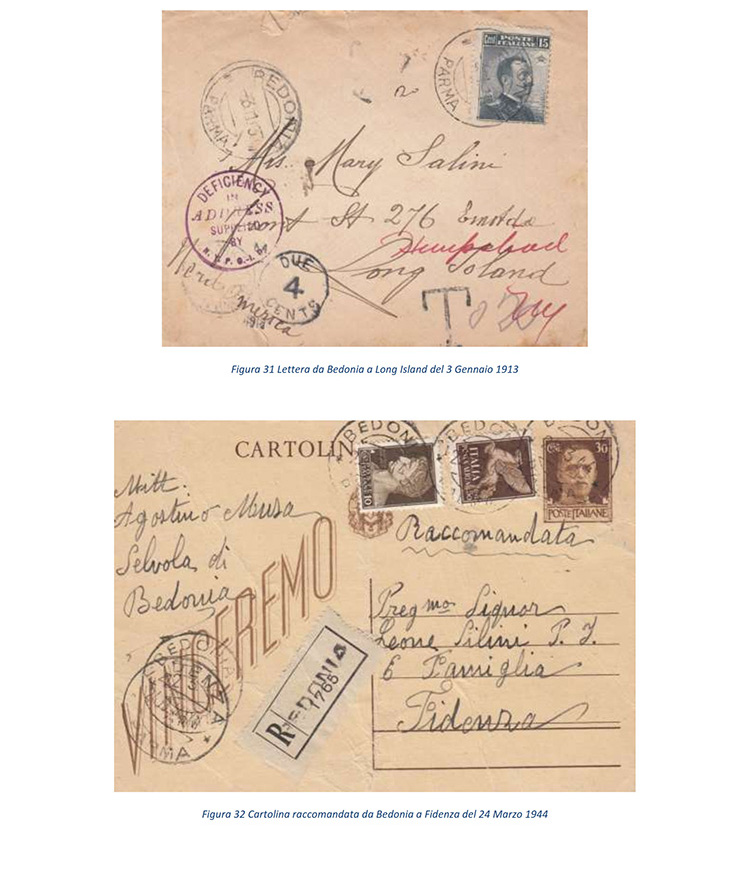 POSTE ITALIANE
Cent 15
BEDONIA
PARMA
PARMA
Mrs. Mary Salini
Front St 276
Long Island
Nord America
DEFICIENCY
IN
ADDRESS
SUPPLIED
BY
N.Y.P.O.
DUE
4
CENTS
T
NY
Figura 31 Lettera da Bedonia a Long Island del 3 Gennaio 1913
CARTOLIN
BEDONI
BEDONI
BEDON
ITALIA
30
POSTE ITALIANE
Mitt:
Agostino Musa
Selvola di
Bedonia
Raccomandata
EREMO
Preg mo Signor
Leone Silini P. I.
e Famiglia
Fidenza
R
BEDONIA
1768
BEDONIA
FIDENZA
PARMA
Figura 32 Cartolina raccomandata da Bedonia a Fidenza del 24 Marzo 1944